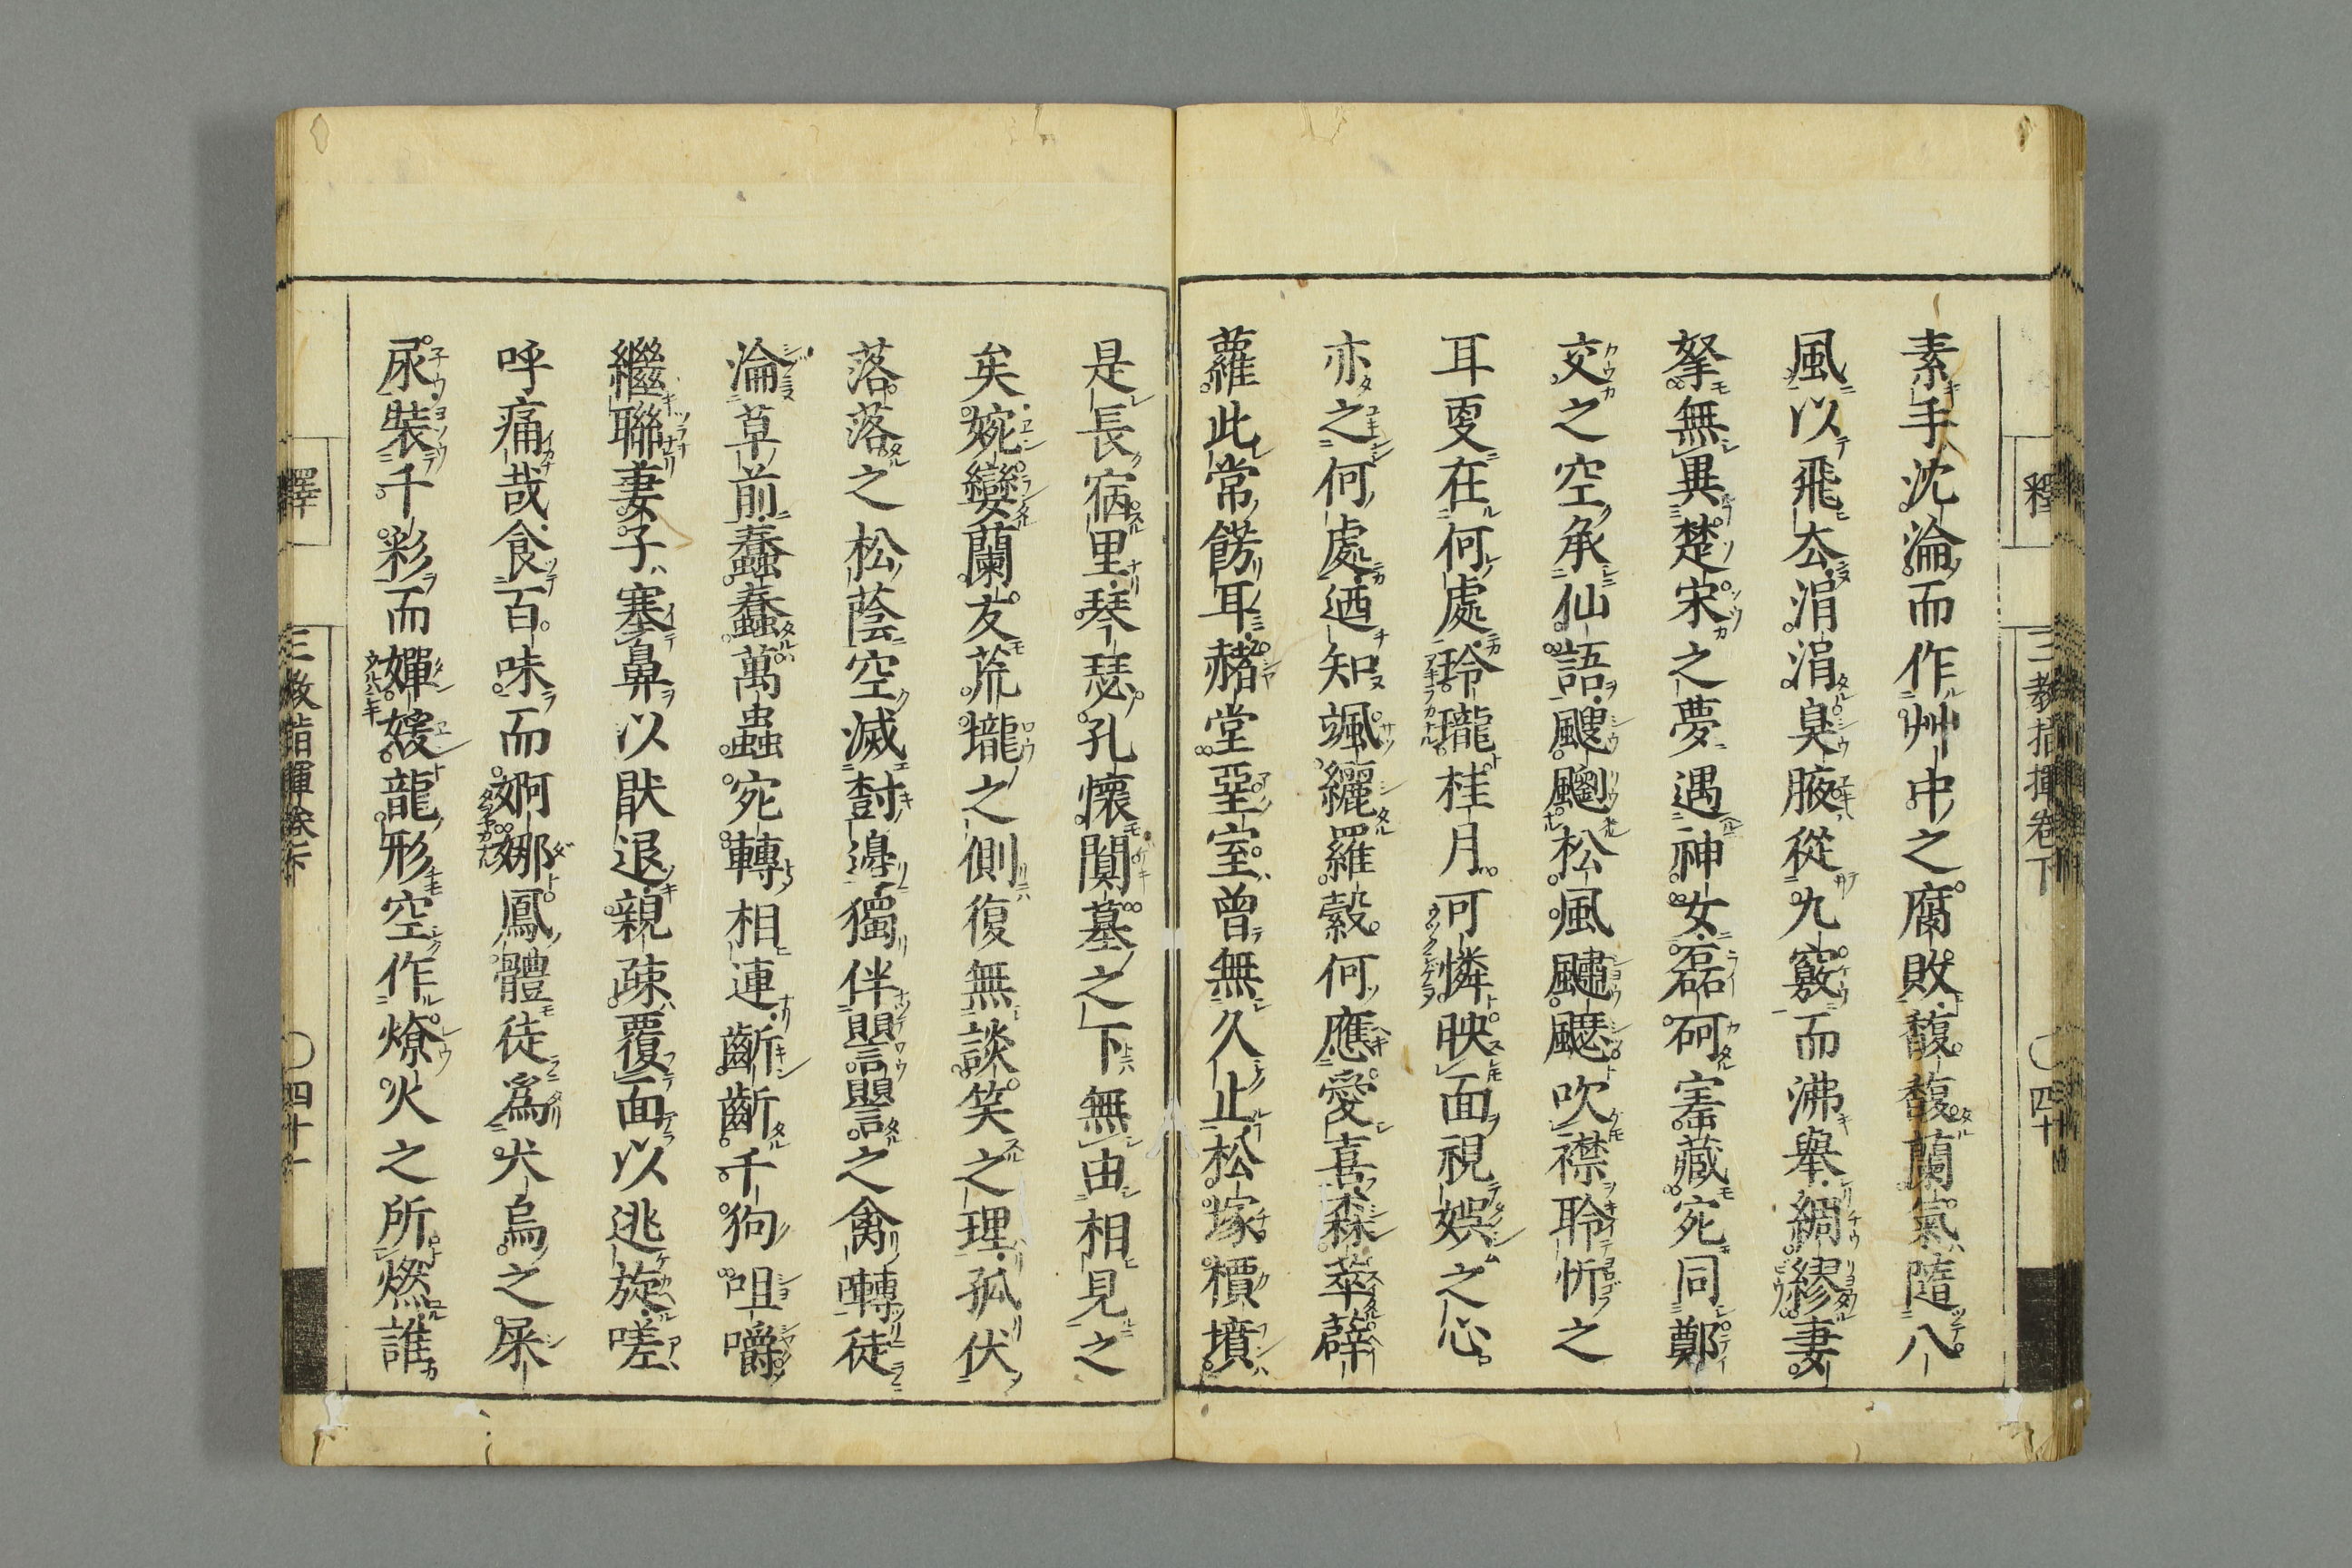 素手沈淪而作艸中之腐敗馥馥蘭氣隨八
風以飛厺涓涓臭腋從九竅而沸舉綢繆妻
孥無異楚宋之夢遇神女磊砢寗藏宛同鄭
交之空承仙語颼飀松風䬒颸吹襟聆忻之
耳更在何處玲瓏桂月可憐映面視娯之心
亦之何處迺知颯纚羅縠何應愛喜森萃薜
蘿此常餝耳赭堂堊室曾無久止松塚檟墳
是長宿里琴瑟孔懷閴墓之下無由相見之
矣婉孌蘭友荒壠之側復無談笑之理孤伏
落落之松蔭空滅樹邊獨伴譻譻之禽囀徒
淪草前蠢蠢萬蟲宛轉相連齗齗千狗咀嚼
繼聯妻子塞鼻以猒退親疎覆面以逃旋嗟
呼痛哉食百味而婀娜鳳體徒爲犬烏之屎
尿裝千彩而嬋媛龍形空作燎火之所燃誰
釋
三教指揮卷下
〇四十
釋
三教指揮卷下
〇四十一